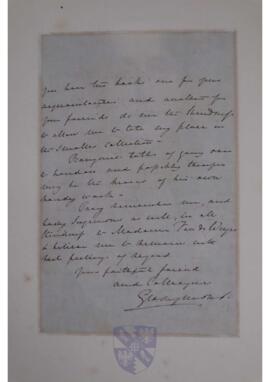 you have two books one for your
acquaintances and another for
your friends do me the kindness
to allow me to take my place in
the smaller collection.
talks of going over
to London and possibly though
may be the bearer of his own
handy work.
Pray remember me, and
Lady as well, in all
kindness to Madame Van de Weyer
& believe me to remain with
best feelings of regard
Your faithful friend
and Colleague